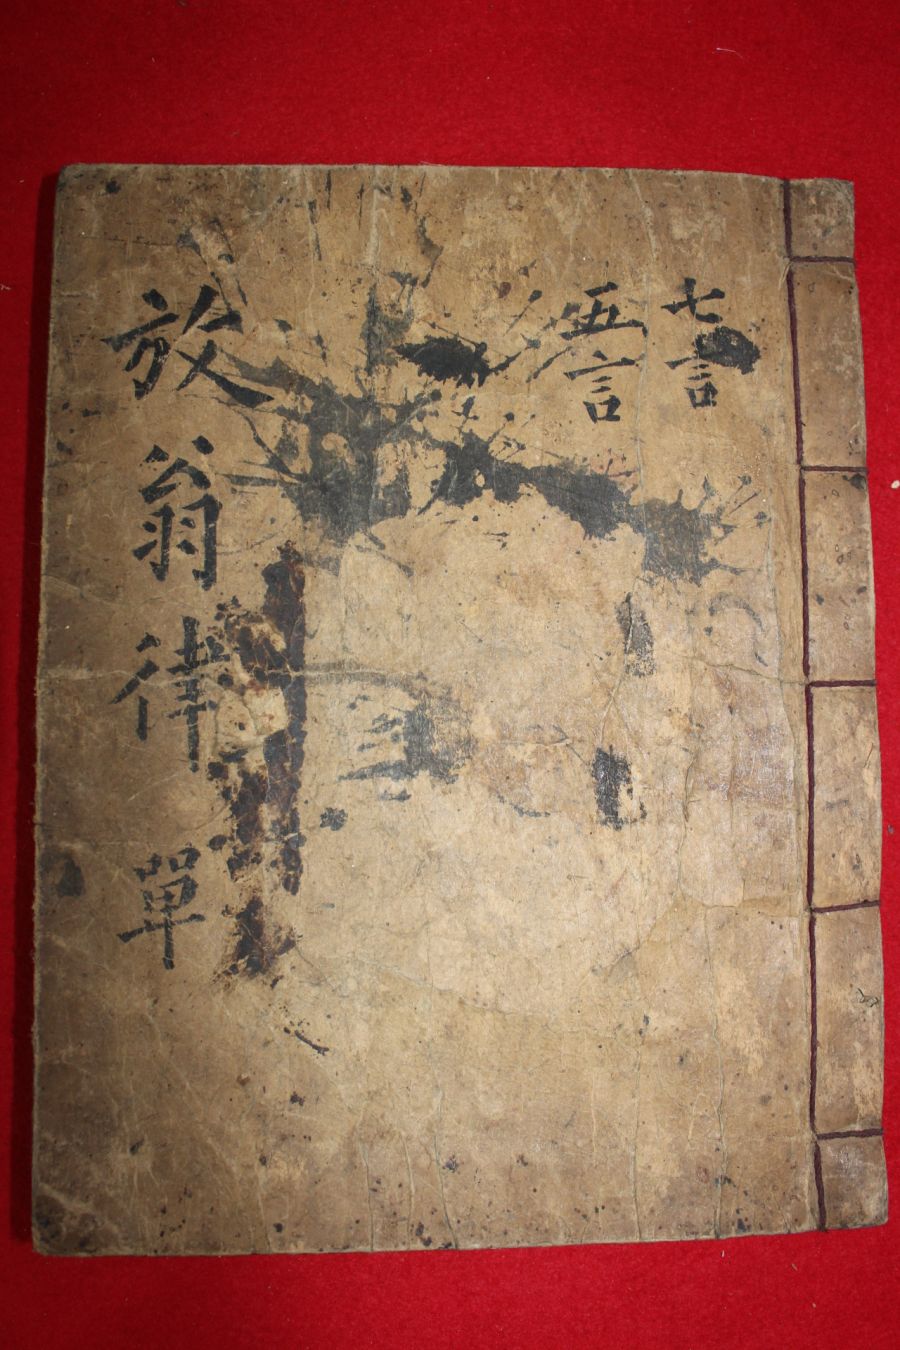 七言
五言
放翁律單